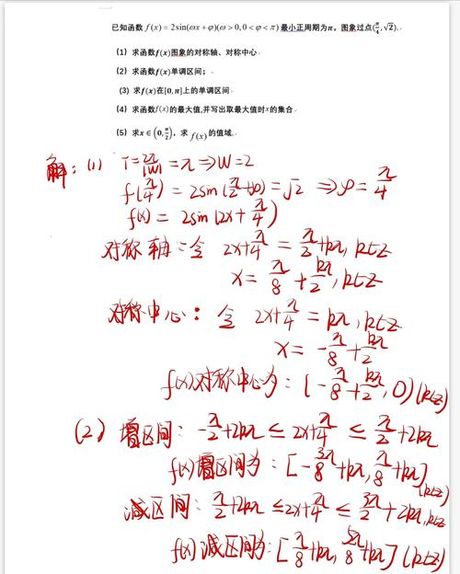 已知函数 f(x)=2sin(ωx+φ)(ω>0,0<φ<π)最小正周期为π，图象过点(π/4,√2).
(1) 求函数f(x)图象的对称轴、对称中心
(2) 求函数f(x)单调区间；
(3) 求f(x)在[0,π]上的单调区间
(4) 求函数f(x)的最大值,并写出取最大值时x的集合
(5) 求x∈(0,π/2)，求 f(x)的值域.
解：(1) T=2π/|W|=π⇒W=2
f(π/4)=2sin(π/2+φ)=√2 ⇒φ=π/4
f(x)=2sin(2x+π/4)
对称轴：令 2x+π/4=π/2+kπ,k∈Z
x=π/8+kπ/2,k∈Z
对称中心：令 2x+π/4=kπ,k∈Z
x=-π/8+kπ/2
f(x)对称中心为：(-π/8+kπ/2,0)(k∈Z)
(2) 增区间：-π/2+2kπ≤2x+π/4≤π/2+2kπ
f(x)增区间为：[-3π/8+kπ,π/8+kπ](k∈Z)
减区间：π/2+2kπ≤2x+π/4≤3π/2+2kπ,k∈Z
f(x)减区间为：[π/8+kπ,5π/8+kπ](k∈Z)